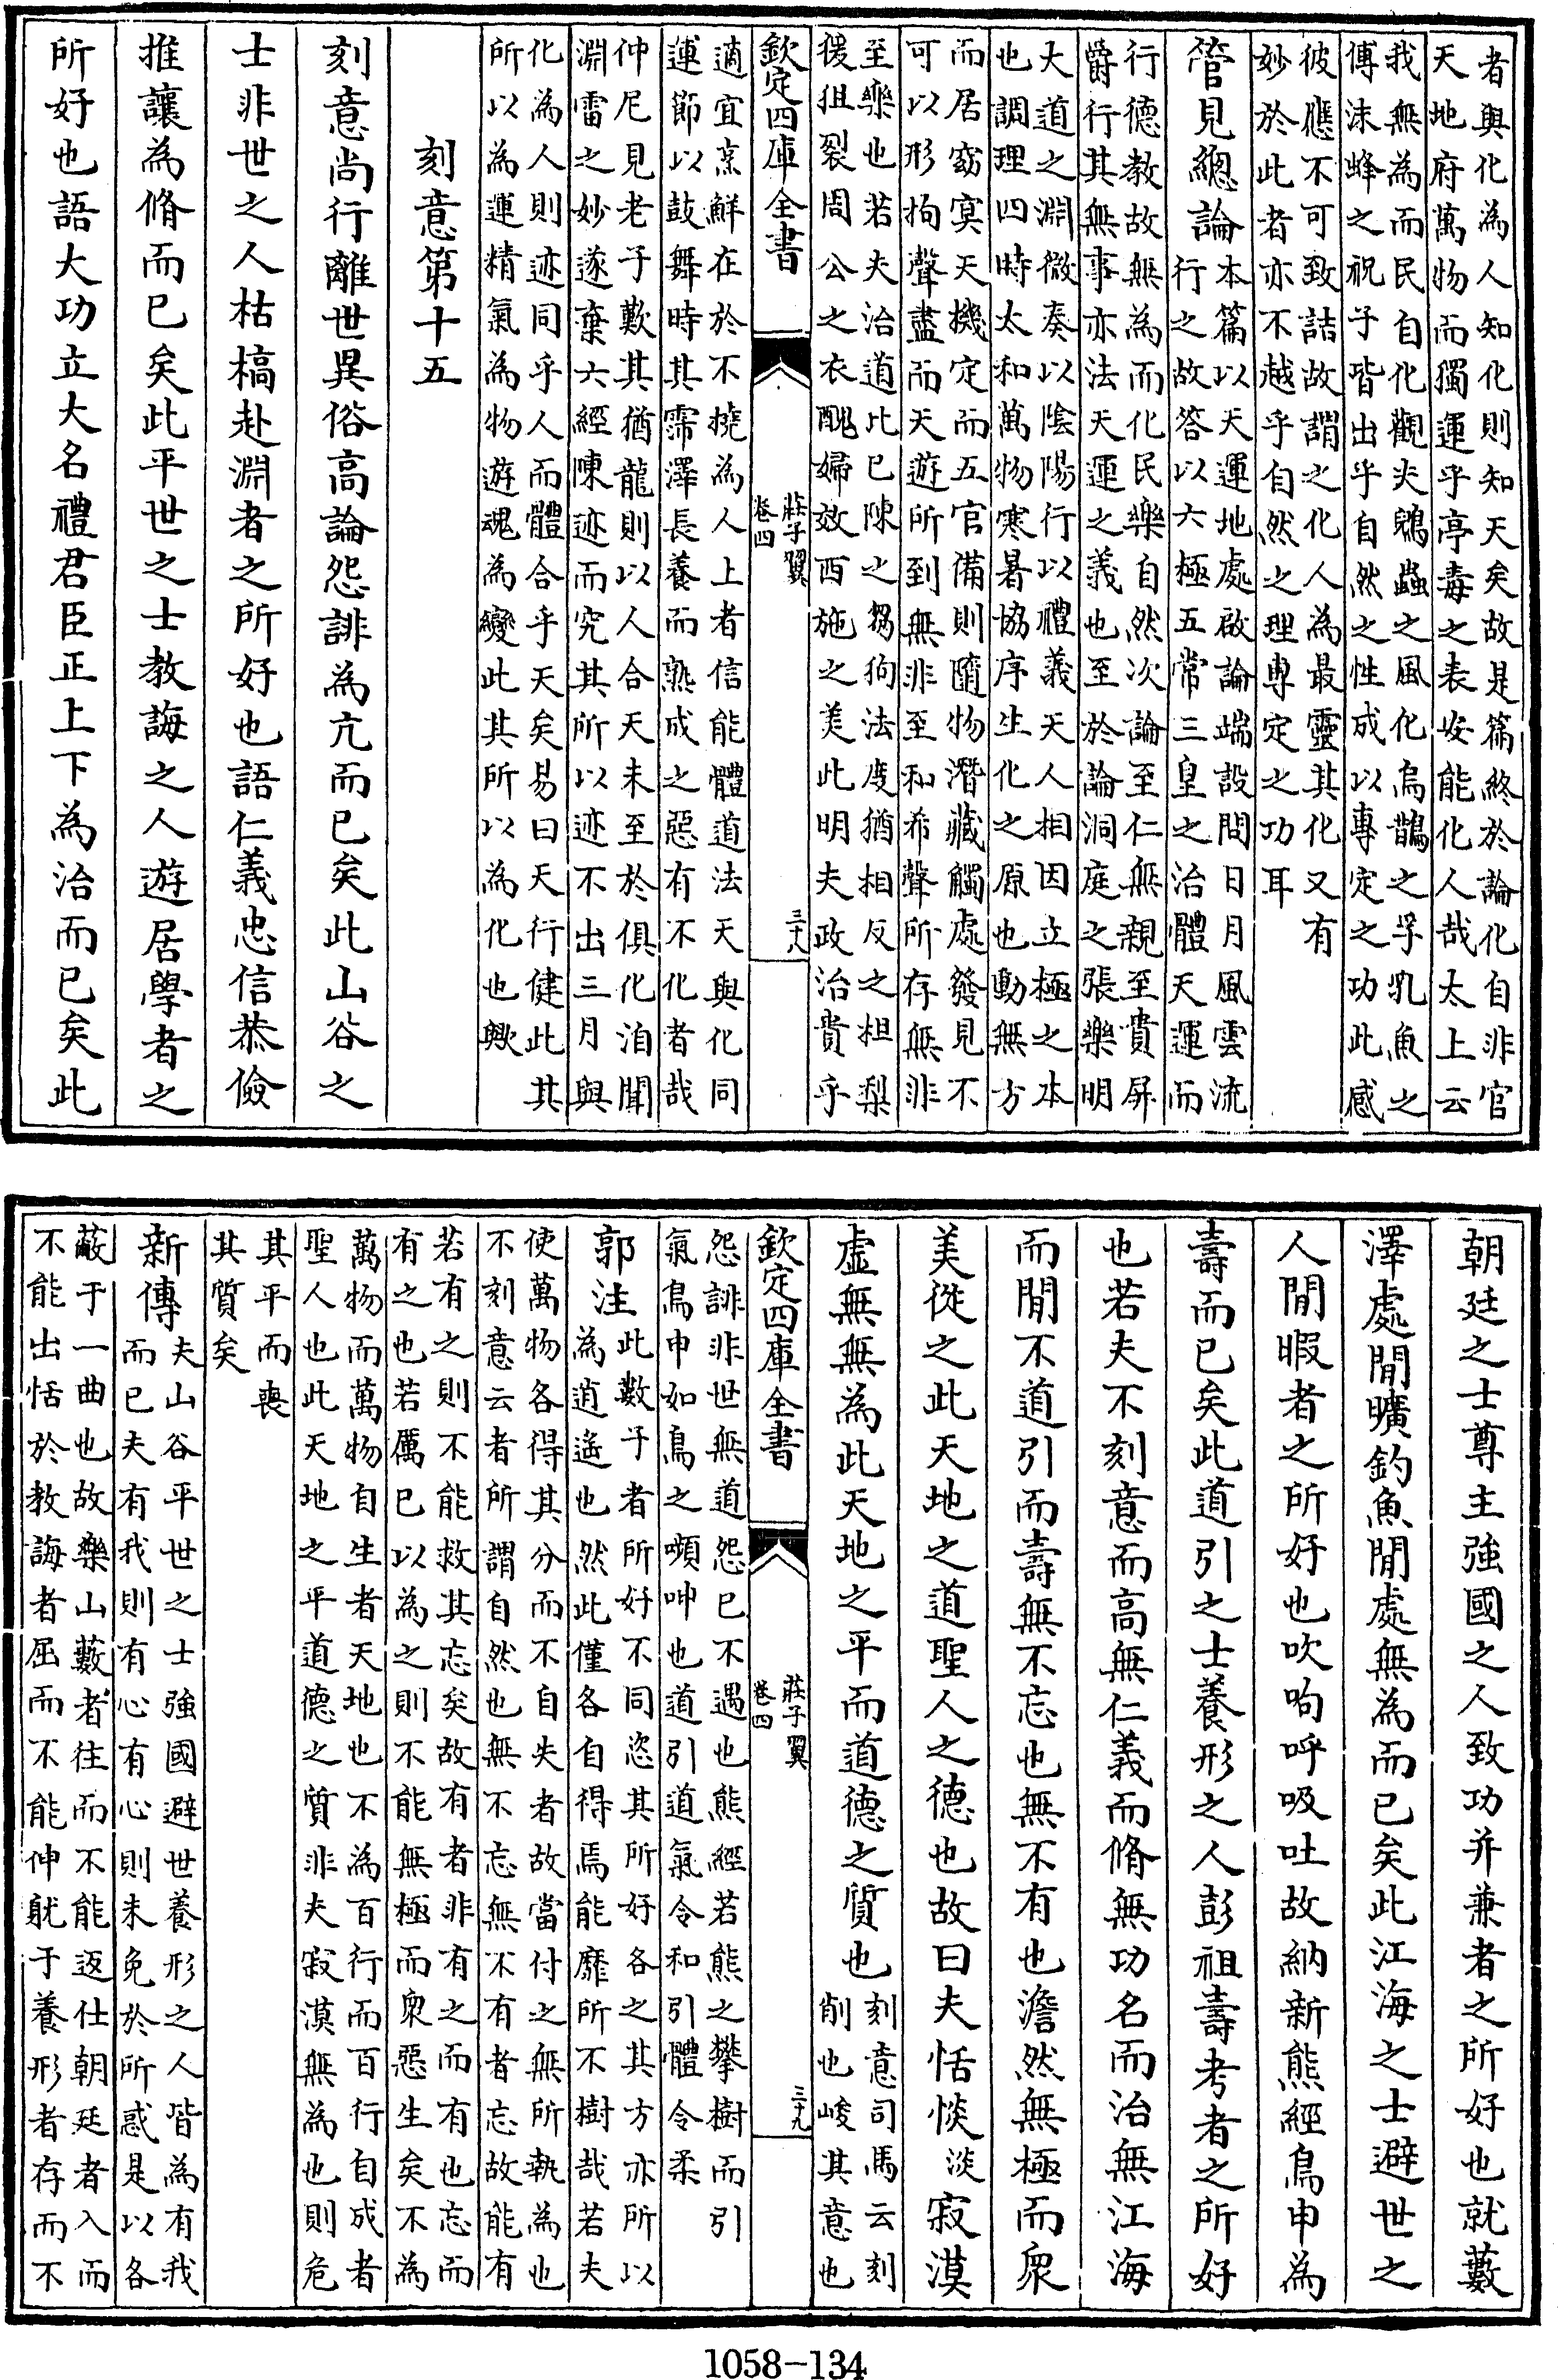 者與化為人知化則知天矣故是篇終於論化自非官
天地府萬物而獨運乎亭毒之表安能化人哉太上云
我無為而民自化觀夫鶂蟲之風化烏鵲之孚乳魚之
傅沫蜂之祝子皆出乎自然之性成以專定之功此感
彼應不可致詰故謂之化人為最靈其化又有
妙於此者亦不越乎自然之理專定之功耳
管見總論
本篇以天運地處啟論端設問日月風雲流
行之故答以六極五常三皇之治體天運而
行德教故無為而化民樂自然次論至仁無親至貴屏
爵行其無事亦法天運之義也至於論洞庭之張樂明
大道之淵微奏以陰陽行以禮義天人相因立極之本
也調理四時太和萬物寒暑協序生化之原也動無方
而居窈冥天機定而五官備則隨物潛藏觸處發見不
可以形拘聲盡而天遊所到無非至和希聲所存無非
至樂也若夫治道比已陳之芻狗法度猶相反之柤梨
猨狙裂周公之衣醜婦效西施之美此明夫政治貴乎
欽定四庫全書
莊子翼
卷四
三十八
適宜烹鮮在於不撓為人上者信能體道法天與化同
運節以鼓舞時其霈澤長養而熟成之惡有不化者哉
仲尼見老子歎其猶龍則以人合天未至於俱化洎聞
淵雷之妙遂棄六經陳迹而究其所以迹不出三月與
化為人則迹同乎人而體合乎天矣易曰天行健此其
所以為運精氣為物遊魂為變此其所以為化也歟
刻意第十五
刻意尚行離世異俗高論怨誹為亢而已矣此山谷之
士非世之人枯槁赴淵者之所好也語仁義忠信恭儉
推讓為脩而已矣此平世之士教誨之人遊居學者之
所好也語大功立大名禮君臣正上下為治而已矣此
朝廷之士尊主強國之人致功并兼者之所好也就藪
澤處閒曠釣魚閒處無為而已矣此江海之士避世之
人閒暇者之所好也吹呴呼吸吐故納新熊經鳥申為
壽而已矣此道引之士養形之人彭祖壽考者之所好
也若夫不刻意而高無仁義而脩無功名而治無江海
而閒不道引而壽無不忘也無不有也澹然無極而衆
美從之此天地之道聖人之德也故曰夫恬惔淡寂漠
虛無無為此天地之平而道德之質也
刻意司馬云刻
削也峻其意也
欽定四庫全書
莊子翼
卷四
三十九
怨誹非世無道怨已不遇也熊經若熊之攀樹而引
氣鳥申如鳥之嚬呻也道引道氣令和引體令柔
郭注
此數子者所好不同恣其所好各之其方亦所以
為逍遙也然此僅各自得焉能靡所不樹哉若夫
使萬物各得其分而不自失者故當付之無所執為也
不刻意云者所謂自然也無不忘無不有者忘故能有
若有之則不能救其忘矣故有者非有之而有也忘而
有之也若厲已以為之則不能無極而衆惡生矣不為
萬物而萬物自生者天地也不為百行而百行自成者
聖人也此天地之平道德之質非夫寂漠無為也則危
其平而喪
其質矣
新傳
夫山谷平世之士強國避世養形之人皆為有我
而已夫有我則有心有心則未免於所惑是以各
蔽于一曲也故樂山藪者往而不能返仕朝廷者入而
不能出恬於教誨者屈而不能伸躭于養形者存而不
1058-134